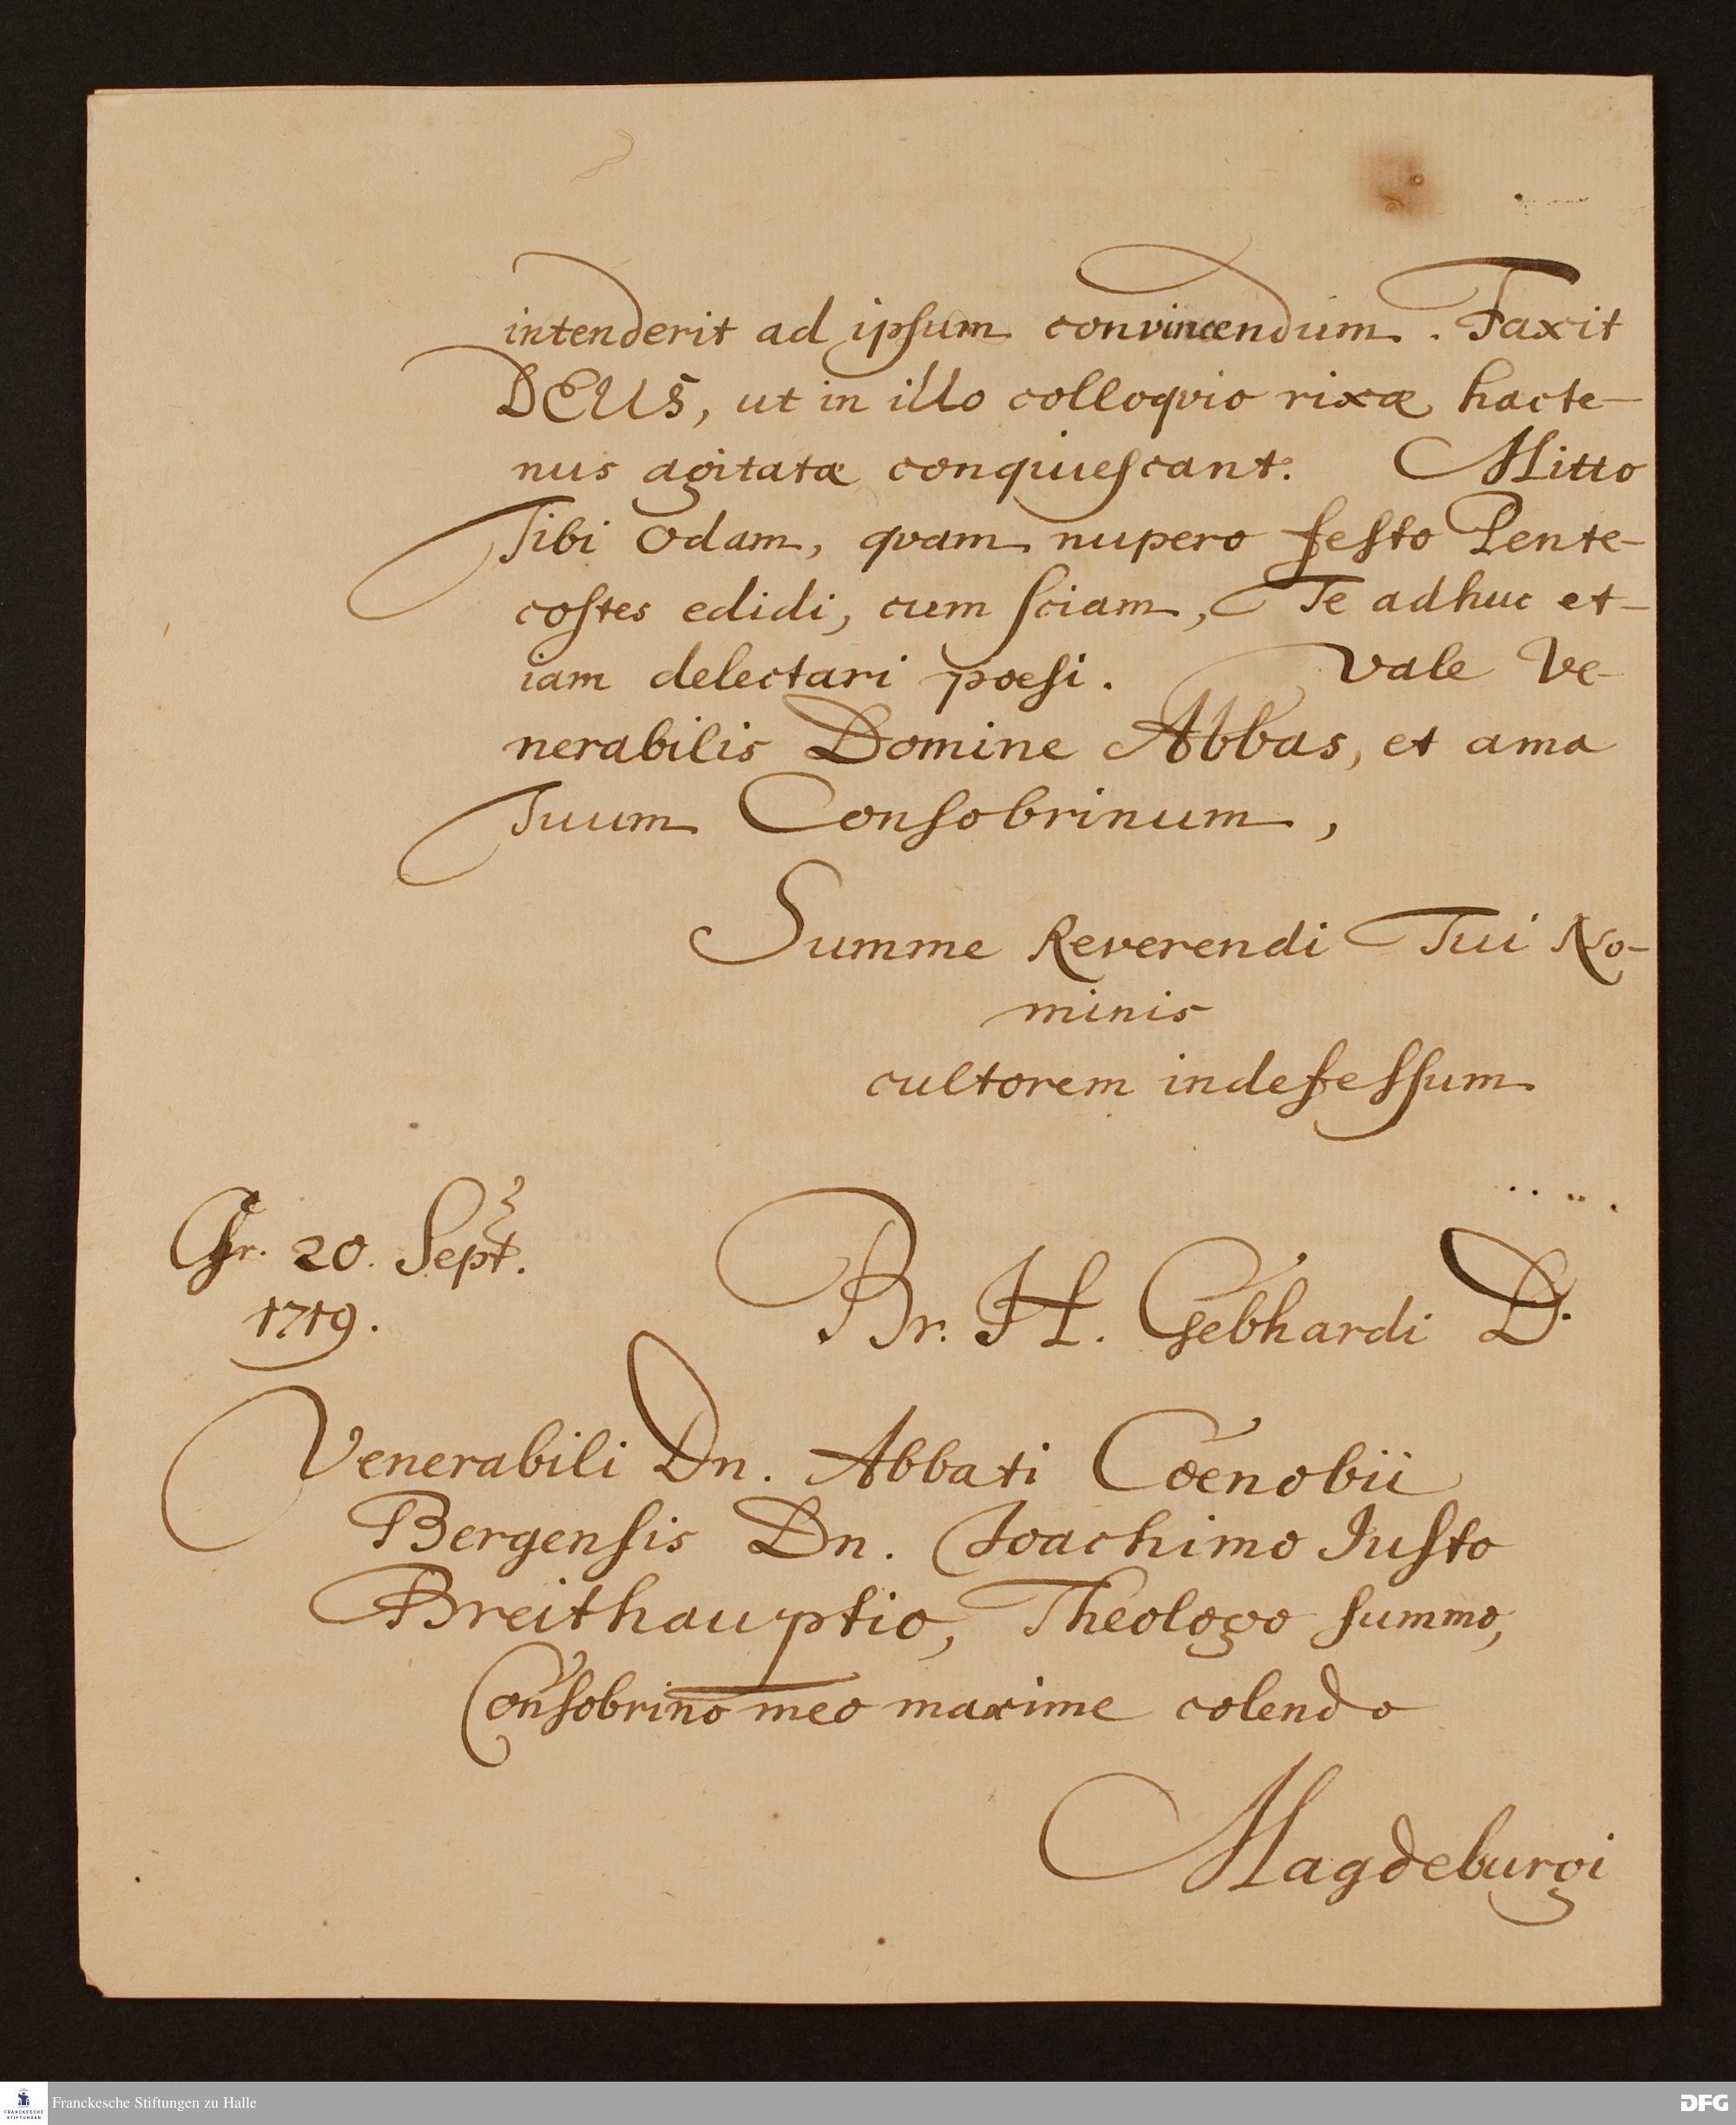 intenderit ad ipsum convincendum. Faxit
DEUS, ut in illo colloquio rixæ hacte-
nus agitatæ conquiescant. Mitto
Tibi Odam, quam nupero festo Pente-
costes edidi, cum sciam, Te adhuc et-
iam delectari poesi. Vale Ve-
nerabilis Domine Abbas, et ama
Tuum Consobrinum,
Summe Reverendi Tui No-
minis
cultorem indefessum
Gr. 20. Sept.
1719.
Br. H. Gebhardi D.
Venerabili Dn. Abbati Coenobii
Bergensis Dn. Joachimo Justo
Breithauptio, Theologo summo,
Consobrino meo maxime colendo
Magdeburgi
FRANCKESCHE
STIFTUNGEN
Franckesche Stiftungen zu Halle
DFG